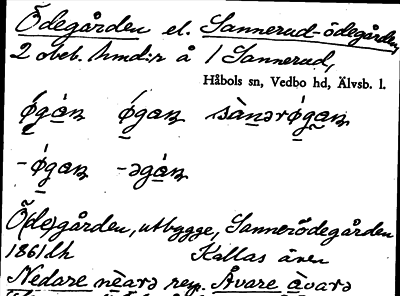 Ödegården el. Sannerud-ödegården,
2 obeb. hmd:r å 1 Sannerud,
Håbols sn, Vedbo hd, Älvsb. l.
ǿgàn ǿgan sànǝrǿgan
-ǿgan -ǝgán
Ö(de)gården, utbygge, Sannerödegården
1861 lh Kallas även
Nedare nèarǝ resp. Åvare àvarǝ